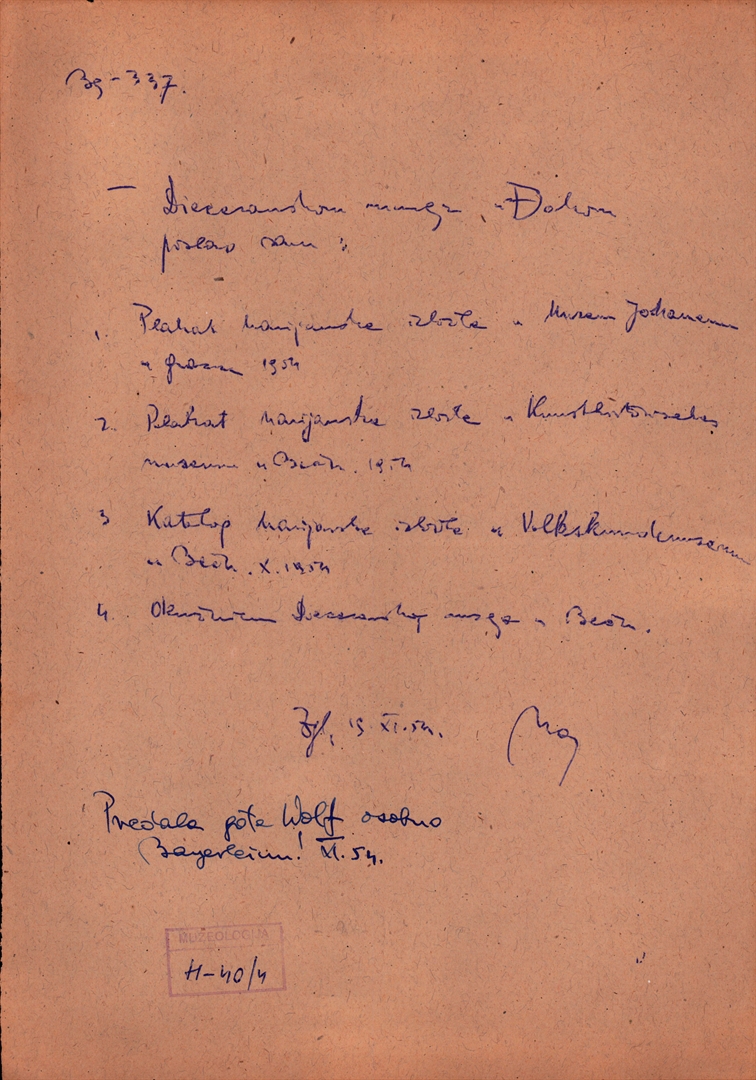 Bg-337.
— Diecezanskom muzeju u Đakovu
poslao sam:
1. Plakat Marijanske izložbe u Museum Johaneum
u Grazu 1954
2. Plakat Marijanske izložbe u Kunsthistorisches
museum u Beču. 1954
3 Katalog Marijanske izložbe u Volkskundemuseum
u Beču. X. 1954
4. Okružnicu Diecezanskog muzeja u Beču.
Zgb, 19 XI. 54.
Predala gđa Wolf osobno
Bayerleinu! XI. 54.
MUZEOLOGIJA
H-40/4